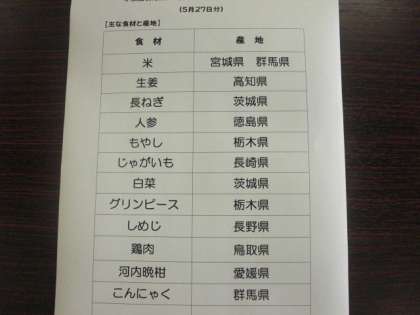 (5月27日分)
【主な食材と産地】
食材 産地
米 宮城県 群馬県
生姜 高知県
長ねぎ 茨城県
人参 徳島県
もやし 栃木県
じゃがいも 長崎県
白菜 茨城県
グリンピース 栃木県
しめじ 長野県
鶏肉 鳥取県
河内晩柑 愛媛県
こんにゃく 群馬県